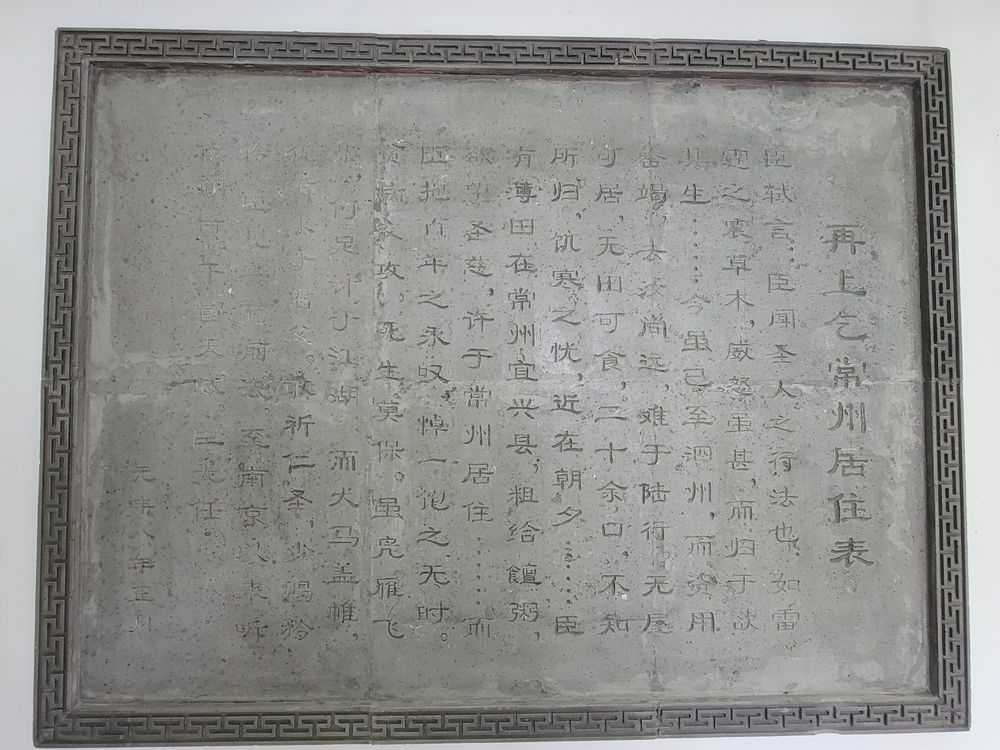 再上乞常州居住表
臣轼言，臣闻圣人之行法也，如雷
霆之震草木，威怒虽甚，而归于欲
其生……今虽已至泗州，而资用
罄竭，去汝尚远，难于陆行。无屋
可居，无田可食，二十余口，不知
所归，饥寒之忧，近在朝夕……臣
有薄田在常州宜兴县，粗给饘粥，
欲望圣慈，许于常州居住……而
臣抱百年之永叹，悼一饱之无时。
贫病交攻，死生莫保。虽凫雁飞
集，何足计于江湖，而犬马盖帷，
犹有求于君父。敢祈仁圣，少赐矜
怜，臣见一面前去，至南京以来听
候朝旨。干冒天威，臣无任。
元丰八年正月